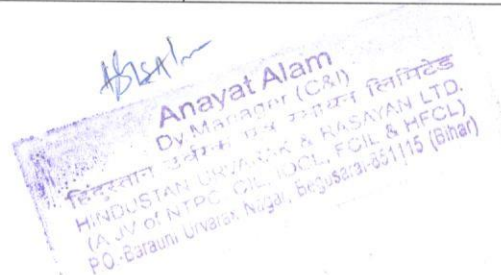 Anayat Alam
Dy. Manager (C&I)
हिन्दुस्तान उर्वरक एवं रसायन लिमिटेड
HINDUSTAN URVARAK & RASAYAN LTD.
(A JV of NTPC, CIL, IOCL, FCIL & HFCL)
P.O.-Barauni Urvarak Nagar, Begusarai-851115 (Bihar)